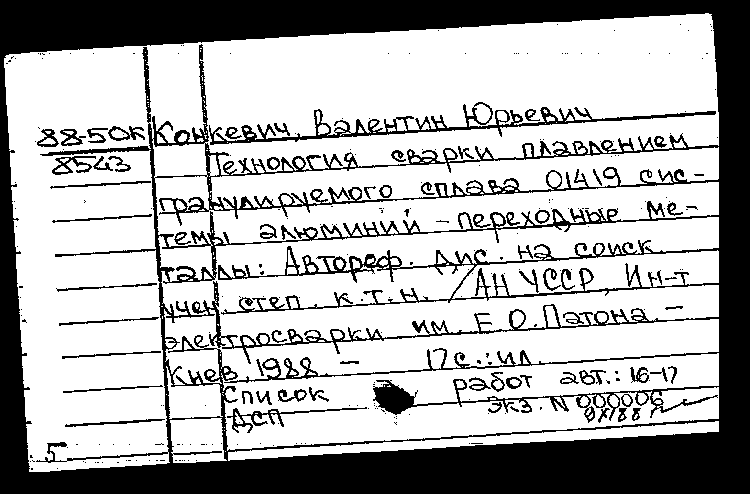 88-50к Конкевич, Валентин Юрьевич
8543 Технология сварки плавлением
гранулируемого сплава 01419 сис-
темы алюминий - переходные ме-
таллы: Автореф. дис. на соиск.
учен. степ. к.т.н. / АН УССР, Ин-т
электросварки им. Е.О. Патона. -
Киев, 1988. - 17 с.: ил.
Список работ авт.: 16-17
ДСП экз. N 000006
5